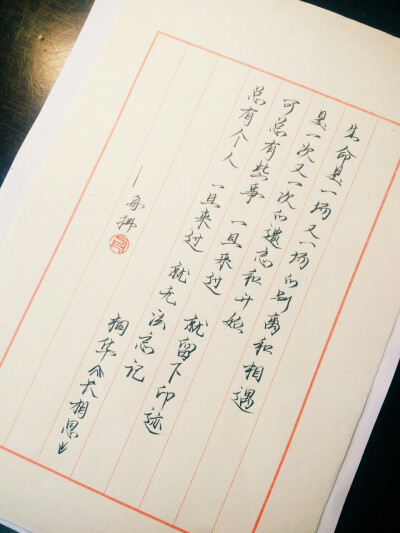 生命是一场又一场的别离和相遇
是一次又一次的遗忘和开始
可总有些事 一旦来过 就留下印迹
总有个人 一旦来过 就无法忘记
桐华《长相思》